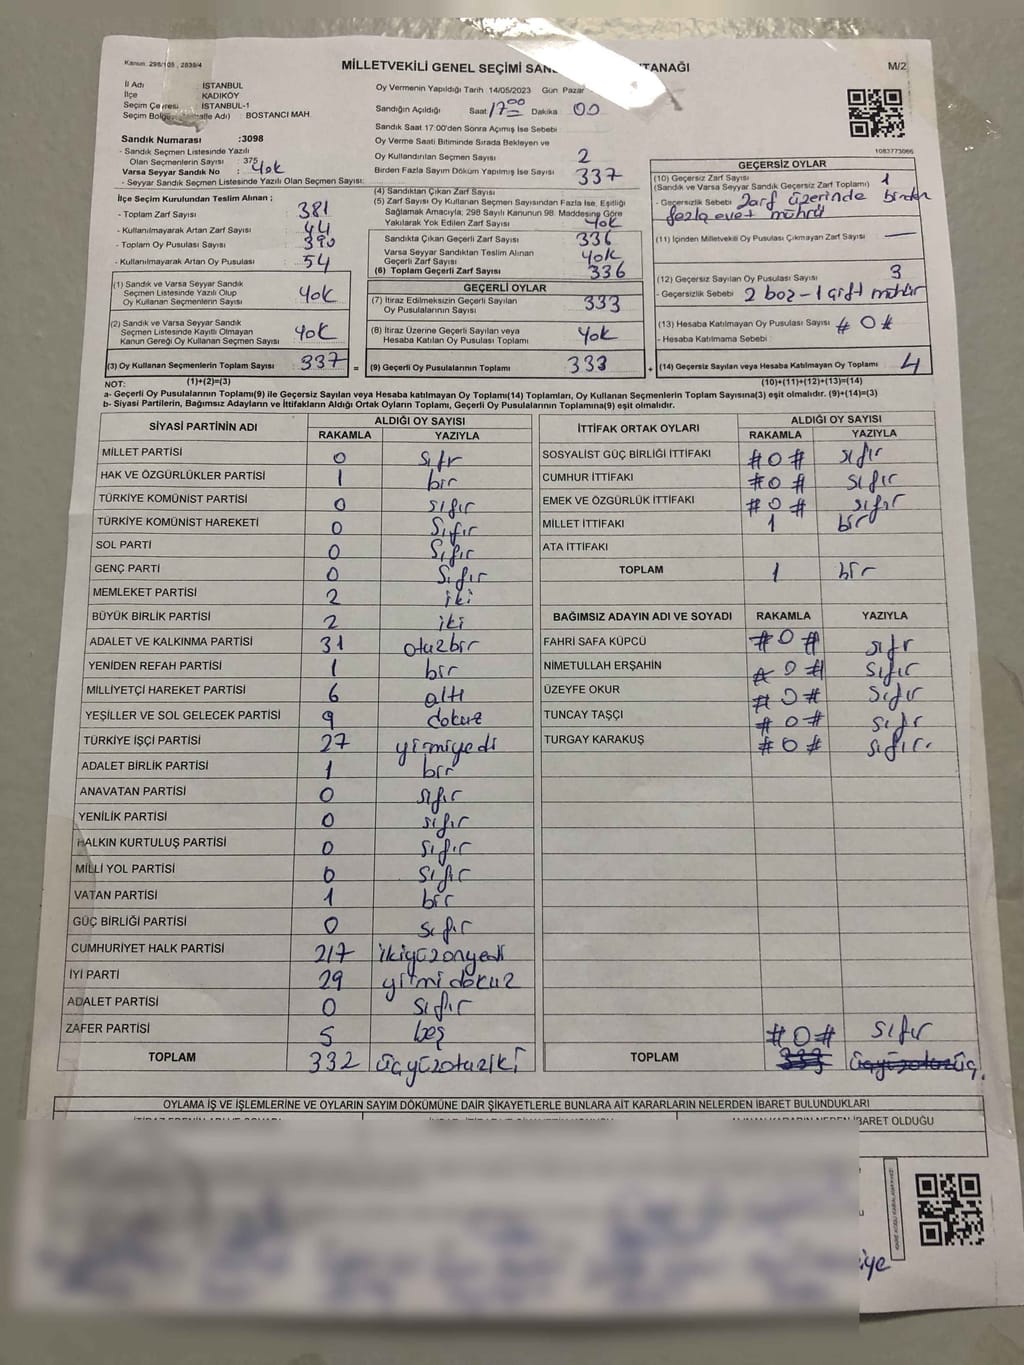 Kanun: 298/105 , 2839/4
MİLLETVEKİLİ GENEL SEÇİMİ TANAĞI
M/2
İl Adı : İSTANBUL
İlçe : KADIKÖY
Seçim Çevresi : İSTANBUL-1
Seçim Bölgesi Adı) BOSTANCI MAH.
Oy Vermenin Yapıldığı Tarih 14/05/2023 Gün Pazar
Sandığın Açıldığı Saat 17:00 Dakika 00
Sandık Saat 17:00'den Sonra Açımış İse Sebebi
Oy Verme Saati Bitiminde Sırada Bekleyen ve
Oy Kullandırılan Seçmen Sayısı 2
Birden Fazla Sayım Döküm Yapılmış İse Sayısı 337
1083773066
Sandık Numarası :3098
- Sandık Seçmen Listesinde Yazılı
Olan Seçmenlerin Sayısı : 375
Varsa Seyyar Sandık No : Yok
- Seyyar Sandık Seçmen Listesinde Yazılı Olan Seçmen Sayısı:
İlçe Seçim Kurulundan Teslim Alınan ;
- Toplam Zarf Sayısı : 381
- Kullanılmayarak Artan Zarf Sayısı : 44
- Toplam Oy Pusulası Sayısı : 390
- Kullanılmayarak Artan Oy Pusulası : 54
(1) Sandık ve Varsa Seyyar Sandık
Seçmen Listesinde Yazılı Olup
Oy Kullanan Seçmenlerin Sayısı Yok
(2) Sandık ve Varsa Seyyar Sandık
Seçmen Listesinde Kayıtlı Olmayan
Kanun Gereği Oy Kullanan Seçmen Sayısı Yok
(3) Oy Kullanan Seçmenlerin Toplam Sayısı 337 =
(4) Sandıktan Çıkan Zarf Sayısı :
(5) Zarf Sayısı Oy Kullanan Seçmen Sayısından Fazla İse, Eşitliği
Sağlamak Amacıyla; 298 Sayılı Kanunun 98. Maddesine Göre
Yakılarak Yok Edilen Zarf Sayısı Yok
Sandıkta Çıkan Geçerli Zarf Sayısı 336
Varsa Seyyar Sandıktan Teslim Alınan
Geçerli Zarf Sayısı Yok
(6) Toplam Geçerli Zarf Sayısı 336
GEÇERLİ OYLAR
(7) İtiraz Edilmeksizin Geçerli Sayılan
Oy Pusulalarının Sayısı 333
(8) İtiraz Üzerine Geçerli Sayılan veya
Hesaba Katılan Oy Pusulası Toplamı Yok
(9) Geçerli Oy Pusulalarının Toplamı 333 +
GEÇERSİZ OYLAR
(10) Geçersiz Zarf Sayısı 1
(Sandık ve Varsa Seyyar Sandık Geçersiz Zarf Toplamı)
- Geçersizlik Sebebi Zarf üzerinde birden
fazla evet mührü
(11) İçinden Milletvekili Oy Pusulası Çıkmayan Zarf Sayısı —
(12) Geçersiz Sayılan Oy Pusulası Sayısı 3
- Geçersizlik Sebebi 2 boz - 1 çift mühür
(13) Hesaba Katılmayan Oy Pusulası Sayısı # 0 #
- Hesaba Katılmama Sebebi
(14) Geçersiz Sayılan veya Hesaba Katılmayan Oy Toplamı 4
NOT: (1)+(2)=(3) (10)+(11)+(12)+(13)=(14)
a- Geçerli Oy Pusulalarının Toplamı(9) ile Geçersiz Sayılan veya Hesaba katılmayan Oy Toplamı(14) Toplamları, Oy Kullanan Seçmenlerin Toplam Sayısına(3) eşit olmalıdır. (9)+(14)=(3)
b- Siyasi Partilerin, Bağımsız Adayların ve İttifakların Aldığı Ortak Oyların Toplamı, Geçerli Oy Pusulalarının Toplamına(9) eşit olmalıdır.
SİYASİ PARTİNİN ADI ALDIĞI OY SAYISI
RAKAMLA YAZIYLA
MİLLET PARTİSİ 0 sıfr
HAK VE ÖZGÜRLÜKLER PARTİSİ 1 bir
TÜRKİYE KOMÜNİST PARTİSİ 0 sıfır
TÜRKİYE KOMÜNİST HAREKETİ 0 Sıfır
SOL PARTİ 0 Sıfır
GENÇ PARTİ 0 Sıfır
MEMLEKET PARTİSİ 2 iki
BÜYÜK BİRLİK PARTİSİ 2 iki
ADALET VE KALKINMA PARTİSİ 31 otuzbir
YENİDEN REFAH PARTİSİ 1 bir
MİLLİYETÇİ HAREKET PARTİSİ 6 altı
YEŞİLLER VE SOL GELECEK PARTİSİ 9 dokuz
TÜRKİYE İŞÇİ PARTİSİ 27 yirmiyedi
ADALET BİRLİK PARTİSİ 1 bir
ANAVATAN PARTİSİ 0 sıfır
YENİLİK PARTİSİ 0 sıfır
HALKIN KURTULUŞ PARTİSİ 0 sıfır
MİLLİ YOL PARTİSİ 0 sıfır
VATAN PARTİSİ 1 bir
GÜÇ BİRLİĞİ PARTİSİ 0 sıfır
CUMHURİYET HALK PARTİSİ 217 ikiyüzonyedi
İYİ PARTİ 29 yirmidokuz
ADALET PARTİSİ 0 sıfır
ZAFER PARTİSİ 5 beş
TOPLAM 332 üçyüzotuziki
İTTİFAK ORTAK OYLARI ALDIĞI OY SAYISI
RAKAMLA YAZIYLA
SOSYALİST GÜÇ BİRLİĞİ İTTİFAKI # 0 # sıfır
CUMHUR İTTİFAKI # 0 # sıfır
EMEK VE ÖZGÜRLÜK İTTİFAKI # 0 # sıfır
MİLLET İTTİFAKI 1 bir
ATA İTTİFAKI
TOPLAM 1 bir
BAĞIMSIZ ADAYIN ADI VE SOYADI RAKAMLA YAZIYLA
FAHRİ SAFA KÜPCÜ # 0 # sıfr
NİMETULLAH ERŞAHİN # 0 # sıfır
ÜZEYFE OKUR # 0 # sıfır
TUNCAY TAŞÇI # 0 # sıfır
TURGAY KARAKUŞ # 0 # sıfır.
# 0 # sıfır
TOPLAM 333 üçyüzotuzüç.
OYLAMA İŞ VE İŞLEMLERİNE VE OYLARIN SAYIM DÖKÜMÜNE DAİR ŞİKAYETLERLE BUNLARA AİT KARARLARIN NELERDEN İBARET BULUNDUKLARI
İBARET OLDUĞU